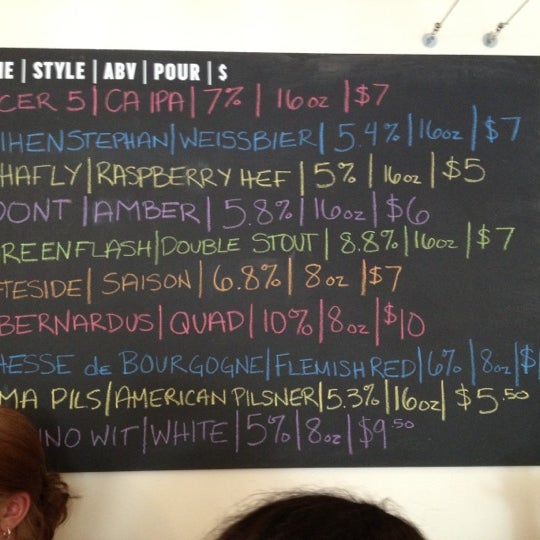 IE | STYLE | ABV | POUR | $
CER 5 | CA IPA | 7% | 16oz | $7
IHENSTEPHAN | WEISSBIER | 5.4% | 16oz | $7
HAFLY | RASPBERRY HEF | 5% | 16oz | $5
DONT | AMBER | 5.8% | 16oz | $6
REENFLASH | DOUBLE STOUT | 8.8% | 16oz | $7
FTESIDE | SAISON | 6.8% | 8oz | $7
BERNARDUS | QUAD | 10% | 8oz | $10
HESSE de BOURGOGNE | FLEMISH RED | 6% | 8oz | $
MA PILS | AMERICAN PILSNER | 5.3% | 16oz | $5.50
NO WIT | WHITE | 5% | 8oz | $9.50